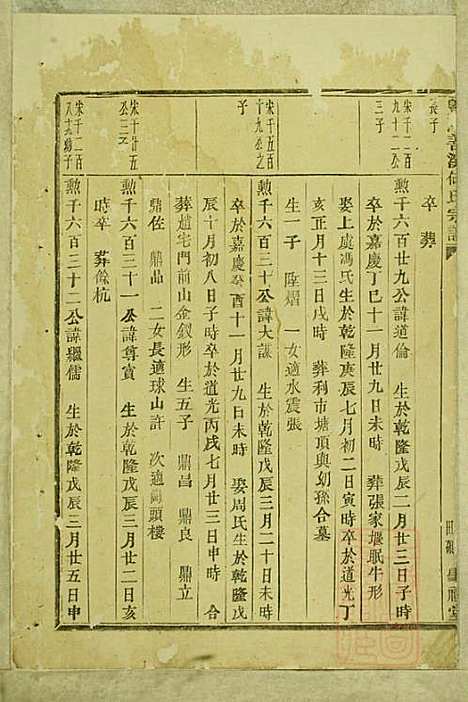 長子
卒 葬
宋千二百
九十二公
三子
勲千六百廿九公諱道倫 生於乾隆戊辰二月廿三日子時
卒於嘉慶丁巳十一月廿九日未時 葬張家堰眠牛形
娶上虞馮氏生於乾隆庚辰七月初二日寅時卒於道光丁
亥正月十三日戌時 葬利市塘頂與幼孫合墓
生一子 陞熠 一女適水震張
宋千五百
十九公之
子
勲千六百三十公諱大謀 生於乾隆戊辰三月二十日子時
卒於嘉慶癸酉十一月廿九日未時 娶周氏生於乾隆戊
辰十月初八日子時卒於道光丙戌七月廿三日申時 合
葬趙宅門前山金釵形 生五子 鼎昌 鼎良 鼎立
鼎佐 鼎品 二女長適球山許 次適岡頭樓
宋千廿五
公三子
勲千六百三十一公諱尊賓 生於乾隆戊辰三月廿二日亥
時卒 葬餘杭
宋千二百
八十九幼子
勲千六百三十二公諱驪儒 生於乾隆戊辰三月廿五日申